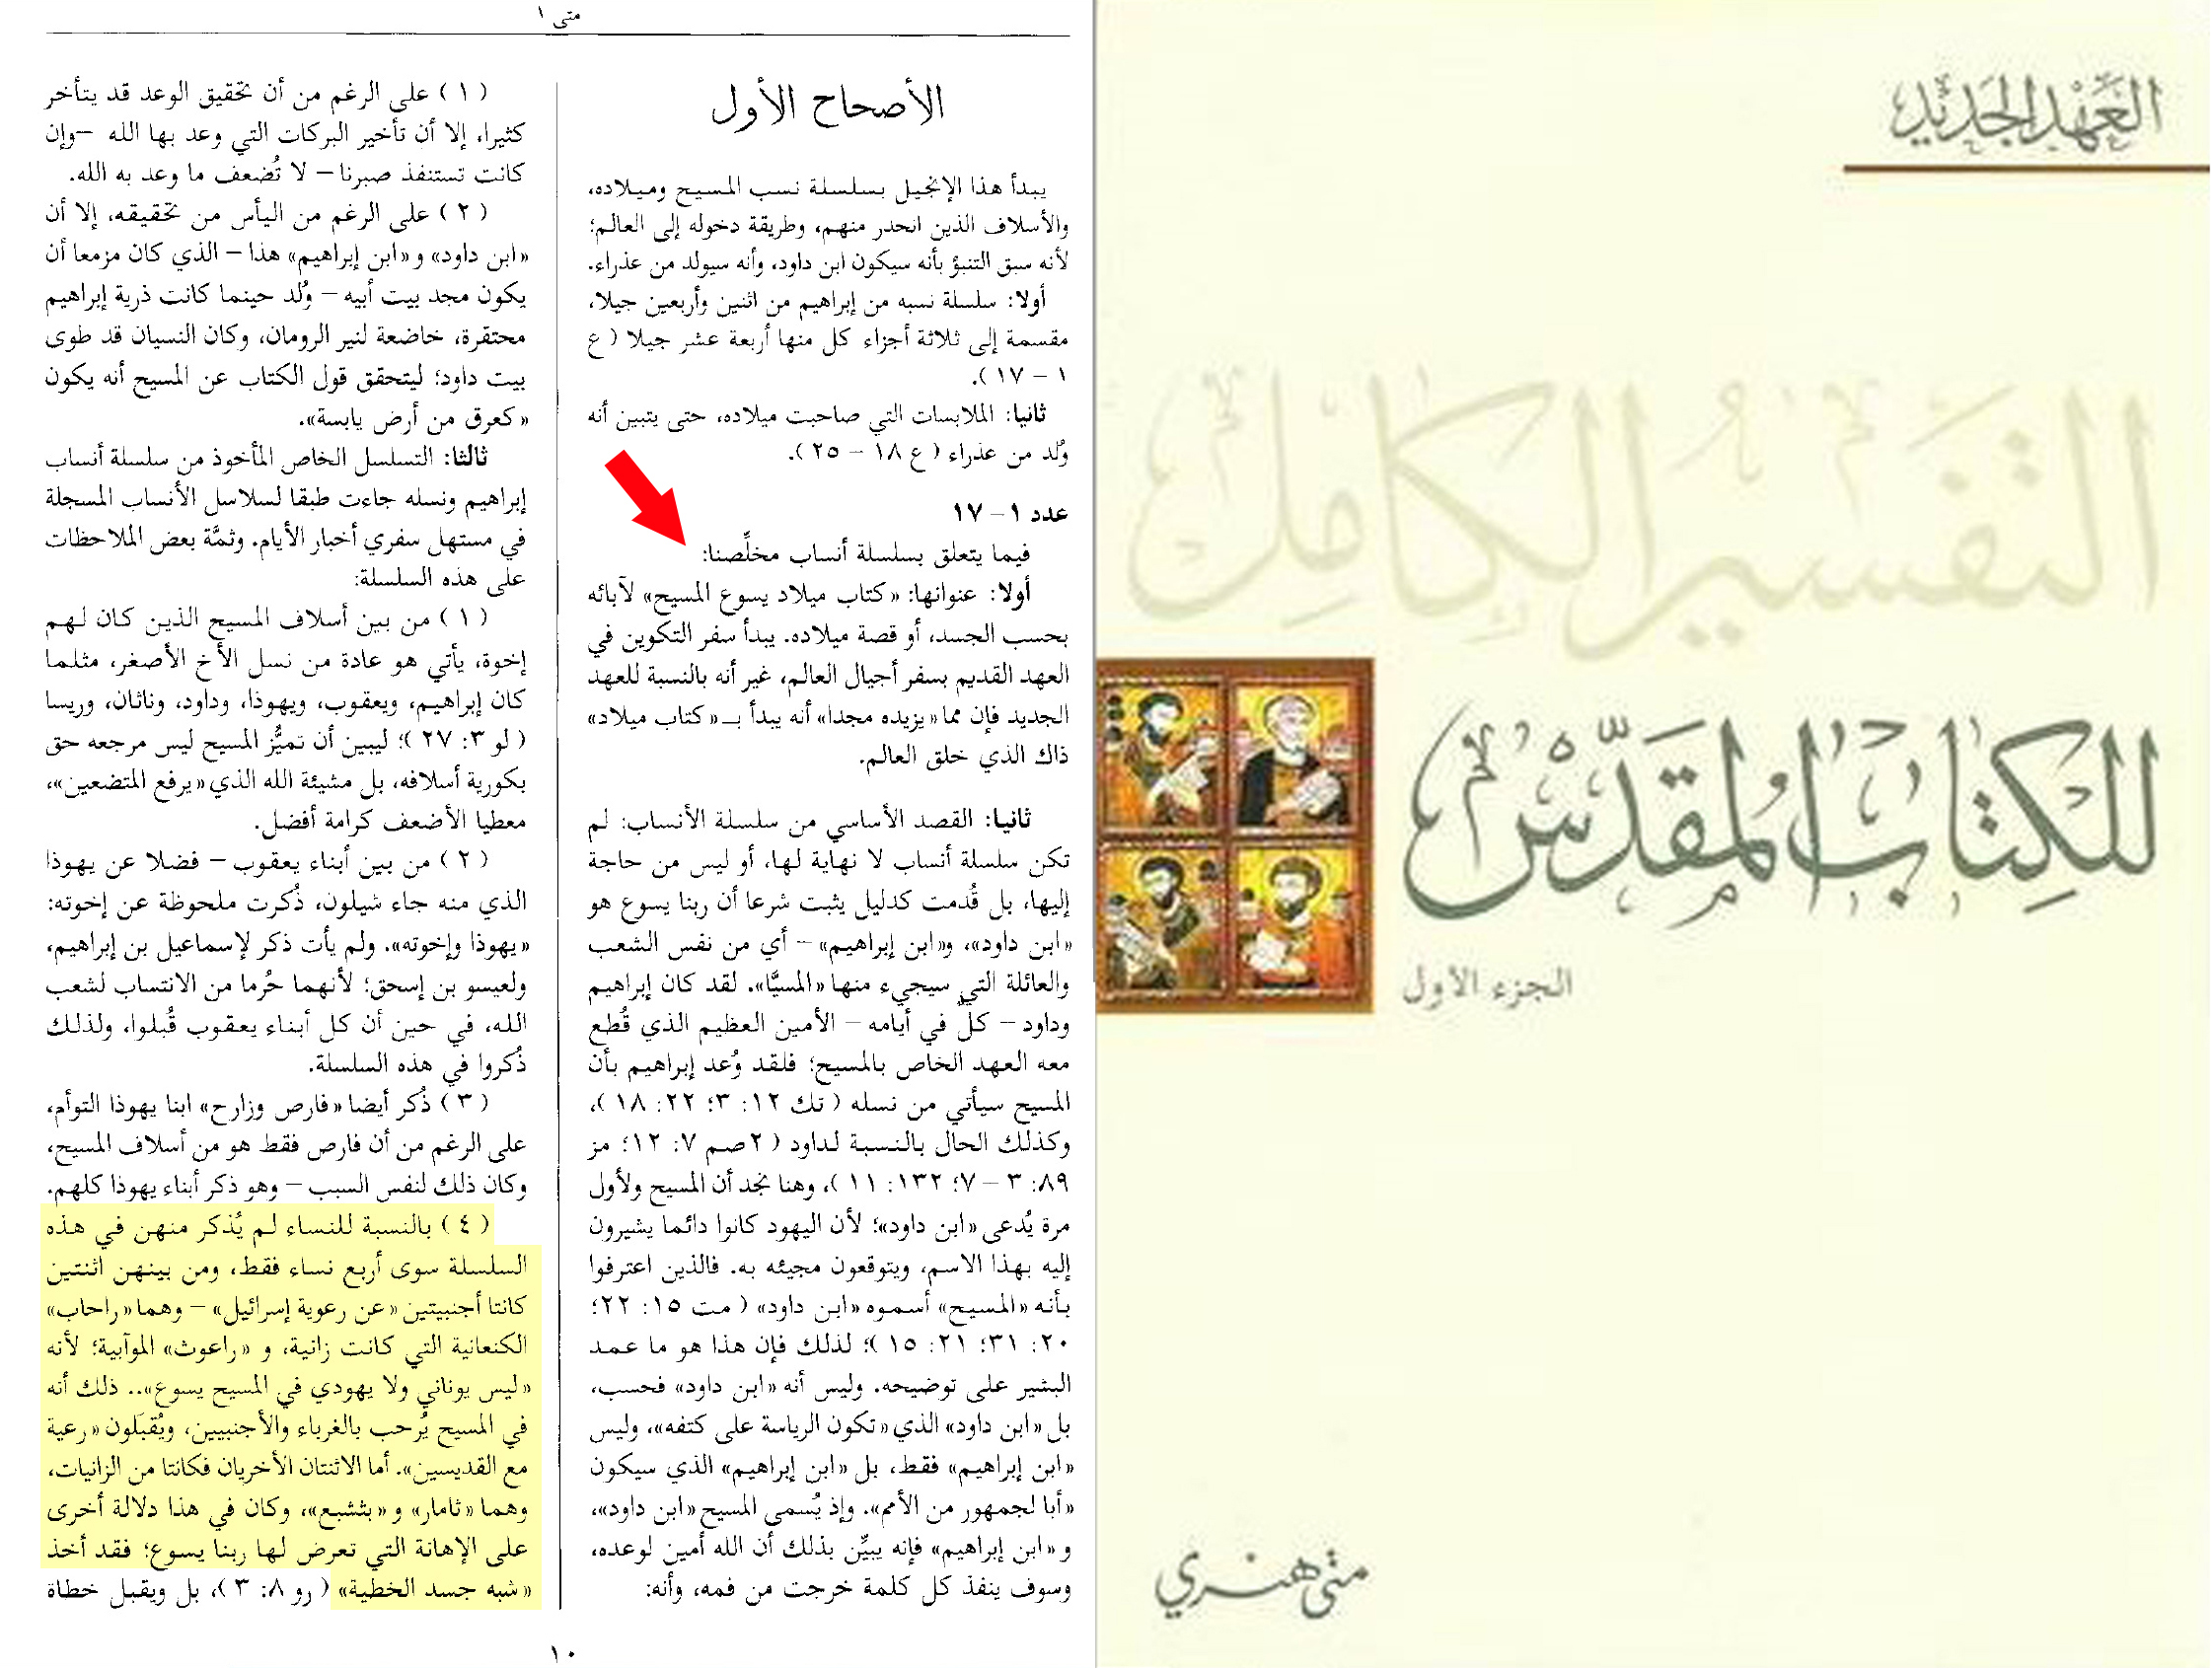 متى ١
الأصحاح الأول
يبدأ هذا الإنجيل بسلسلة نسب المسيح وميلاده،
والأسلاف الذين انحدر منهم، وطريقة دخوله إلى العالم؛
لأنه سبق التنبؤ بأنه سيكون ابن داود، وأنه سيولد من عذراء.
أولا: سلسلة نسبه من إبراهيم من اثنين وأربعين جيلا،
مقسمة إلى ثلاثة أجزاء كل منها أربعة عشر جيلا ( ع
١ – ١٧ ).
ثانيا: الملابسات التي صاحبت ميلاده، حتى يتبين أنه
وُلد من عذراء ( ع ١٨ – ٢٥ ).
عدد ١ – ١٧
فيما يتعلق بسلسلة أنساب مخلّصنا:
أولا: عنوانها: «كتاب ميلاد يسوع المسيح» لآبائه
بحسب الجسد، أو قصة ميلاده. يبدأ سفر التكوين في
العهد القديم بسفر أجيال العالم، غير أنه بالنسبة للعهد
الجديد فإن مما «يزيده مجدا» أنه يبدأ بـ «كتاب ميلاد»
ذاك الذي خلق العالم.
ثانيا: القصد الأساسي من سلسلة الأنساب: لم
تكن سلسلة أنساب لا نهاية لها، أو ليس من حاجة
إليها، بل قُدمت كدليل يثبت شرعا أن ربنا يسوع هو
«ابن داود»، و«ابن إبراهيم» – أي من نفس الشعب
والعائلة التي سيجيء منها «المسيَّا». لقد كان إبراهيم
وداود – كلٌ في أيامه – الأمين العظيم الذي قُطع
معه العهد الخاص بالمسيح؛ فلقد وُعد إبراهيم بأن
المسيح سيأتي من نسله ( تك ١٢: ٣؛ ٢٢: ١٨ )،
وكذلك الحال بالنسبة لداود ( ٢صم ٧: ١٢؛ مز
٨٩: ٣ – ٧؛ ١٣٢: ١١ )، وهنا نجد أن المسيح ولأول
مرة يُدعى «ابن داود»؛ لأن اليهود كانوا دائما يشيرون
إليه بهذا الاسم، ويتوقعون مجيئه به. فالذين اعترفوا
بأنه «المسيح» أسموه «ابن داود» ( مت ١٥: ٢٢؛
٢٠: ٣١؛ ٢١: ١٥ )؛ لذلك فإن هذا هو ما عمد
البشير على توضيحه. وليس أنه «ابن داود» فحسب،
بل «ابن داود» الذي «تكون الرياسة على كتفه»، وليس
«ابن إبراهيم» فقط، بل «ابن إبراهيم» الذي سيكون
«أبا لجمهور من الأمم». وإذ يُسمى المسيح «ابن داود»،
و «ابن إبراهيم» فإنه يبيِّن بذلك أن الله أمين لوعده،
وسوف ينفذ كل كلمة خرجت من فمه، وأنه:
( ١ ) على الرغم من أن تحقيق الوعد قد يتأخر
كثيرا، إلا أن تأخير البركات التي وعد بها الله – وإن
كانت تستنفذ صبرنا – لا تُضعف ما وعد به الله.
( ٢ ) على الرغم من اليأس من تحقيقه، إلا أن
«ابن داود» و «ابن إبراهيم» هذا – الذي كان مزمعا أن
يكون مجد بيت أبيه – وُلد حينما كانت ذرية إبراهيم
محتقرة، خاضعة لنير الرومان، وكان النسيان قد طوى
بيت داود؛ ليتحقق قول الكتاب عن المسيح أنه يكون
«كعرق من أرض يابسة».
ثالثا: التسلسل الخاص المأخوذ من سلسلة أنساب
إبراهيم ونسله جاءت طبقا لسلاسل الأنساب المسجلة
في مستهل سفري أخبار الأيام. وثمَّة بعض الملاحظات
على هذه السلسلة:
( ١ ) من بين أسلاف المسيح الذين كان لهم
إخوة، يأتي هو عادة من نسل الأخ الأصغر، مثلما
كان إبراهيم، ويعقوب، ويهوذا، وداود، وناثان، وريسا
( لو ٣: ٢٧ )؛ ليبين أن تميُّز المسيح ليس مرجعه حق
بكورية أسلافه، بل مشيئة الله الذي «يرفع المتضعين»،
معطيا الأضعف كرامة أفضل.
( ٢ ) من بين أبناء يعقوب – فضلا عن يهوذا
الذي منه جاء شيلون، ذُكرت ملحوظة عن إخوته:
«يهوذا وإخوته». ولم يأت ذكر لإسماعيل بن إبراهيم،
ولعيسو بن إسحق؛ لأنهما حُرما من الانتساب لشعب
الله، في حين أن كل أبناء يعقوب قُبلوا، ولذلك
ذُكروا في هذه السلسلة.
( ٣ ) ذُكر أيضا «فارص وزارح» ابنا يهوذا التوأم،
على الرغم من أن فارص فقط هو من أسلاف المسيح،
وكان ذلك لنفس السبب – وهو ذكر أبناء يهوذا كلهم.
( ٤ ) بالنسبة للنساء لم يُذكر منهن في هذه
السلسلة سوى أربع نساء فقط، ومن بينهن اثنتين
كانتا أجنبيتين «عن رعوية إسرائيل» – وهما «راحاب»
الكنعانية التي كانت زانية، و «راعوث» الموآبية؛ لأنه
«ليس يوناني ولا يهودي في المسيح يسوع».. ذلك أنه
في المسيح يُرحب بالغرباء والأجنبيين، ويُقبَلون «رعية
مع القديسين». أما الاثنتان الأخريان فكانتا من الزانيات،
وهما «ثامار» و «بثشبع»، وكان في هذا دلالة أخرى
على الإهانة التي تعرض لها ربنا يسوع؛ فقد أخذ
«شبه جسد الخطية» ( رو ٨: ٣ )، بل ويقبل خطاة
١٠
العَهْد الجَديد
التفسير الكامل
للكِتاب المقدَّس
الجزء الأول
متى هنري